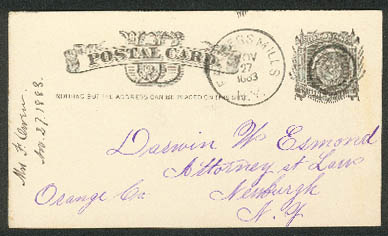 POSTAL CARD.
NOTHING BUT THE ADDRESS CAN BE PLACED ON THIS SIDE
MILLS
NOV
27
1883
N.Y.
Darwin W Esmond
Attorney at Law
Newburgh
Orange Co. N. Y
Nov. 27, 1883.